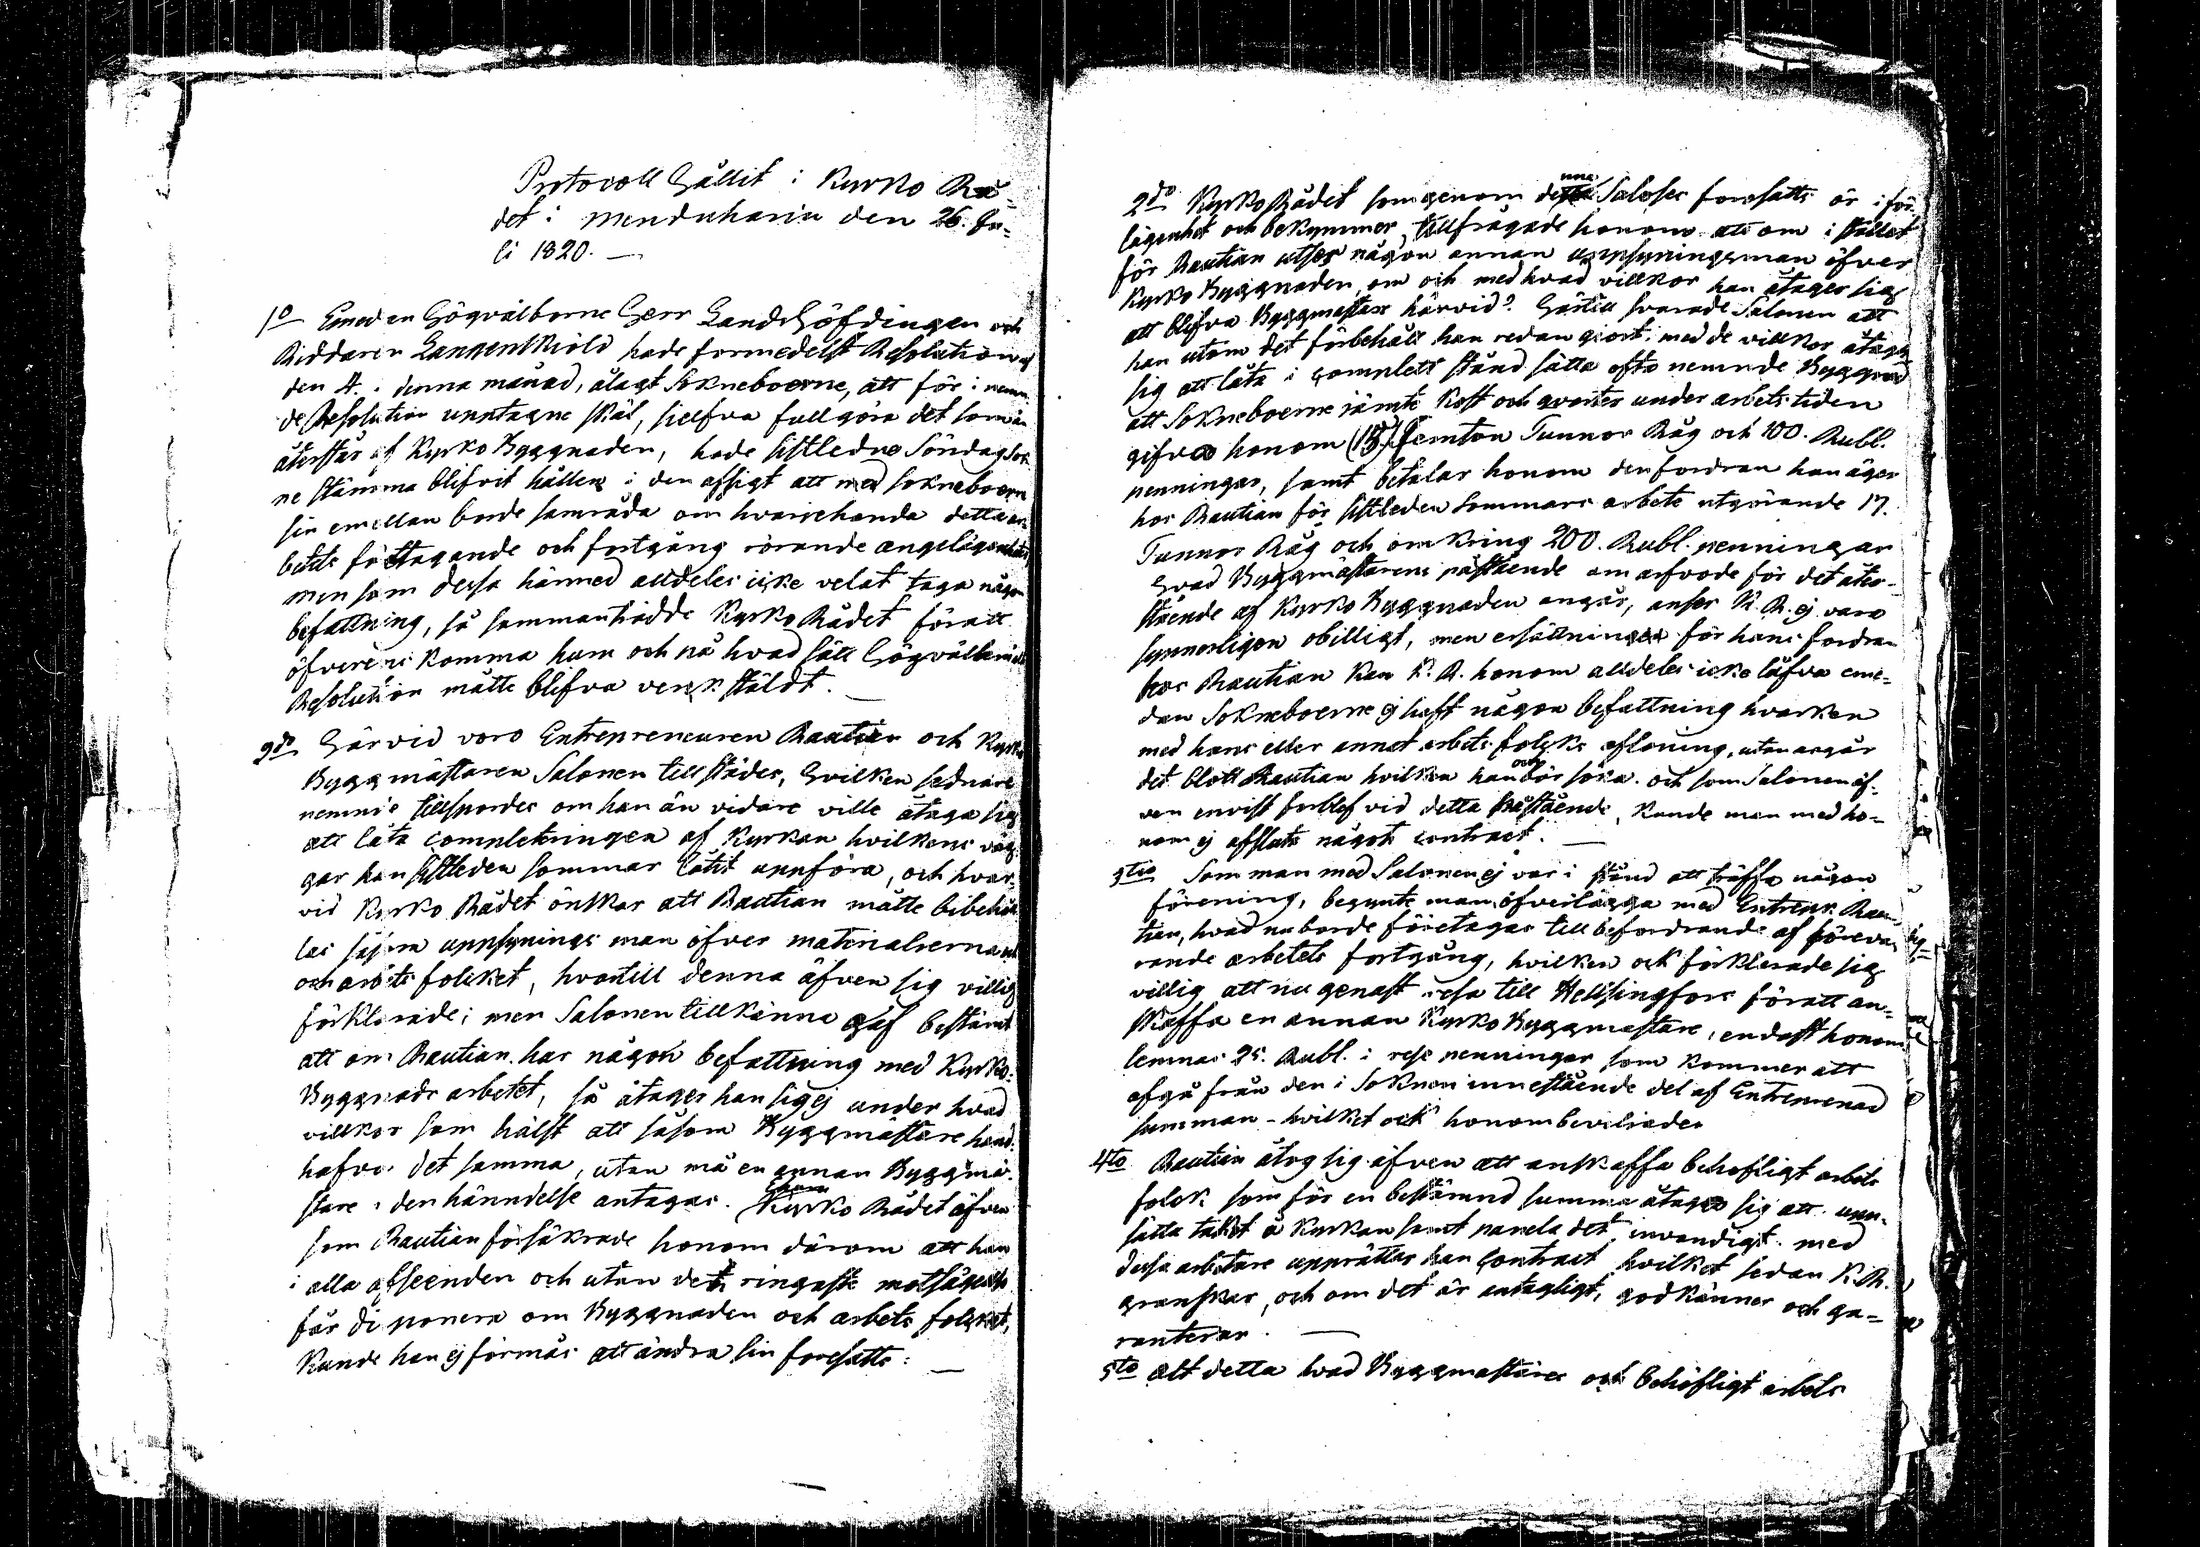 Protocoll hållit i Kyrko Rå-
det i Menduharju den 26. Ju=
li 1820. —
1o Emedan Högvälborne Herr Landshöfdingen och
Riddaren Langenskiöld hade formedelst Resolution af
den 4. i denna månad, ålagt Sokneboerne, att för i nemn-
de Resolution upptagne skäl, sielfva fullgöra det som än
återstår af Kyrko Byggnaden, hade sistledne Söndag Sok
ne stämma blifvit hållen i den afsigt att med Sokneboern
sin emellan borde samråda om hvarjehanda detta ar
betets företagande och fortgång rörande angelägenheter,
men som dessa härmed alldeles icke velat taga någon
befattning, så sammanträdde Kyrko Rådet föratt
öfverens komma hum och på hvad sätt Högvälbemälte
Resolution måtte blifva verkstäldt. —
2do Härvid voro Entrepreneuren Rautian och Kyrko
Byggmästaren Salonen tillstädes, hvilken sednare
nemnde tillspordes om han än vidare ville åtaga sig
att låta completeringen af Kyrkan hvilkens väg-
gar han sistleden sommar låtit uppföra, och hvar-
vid Kyrko Rådet önskar att Rautian måtte bibehål
las såsom uppsynings man öfver materialierna
och arbets folcket, hvartill denna äfven sig villig
förklarade; men Salonen tillkänna gaf bestämt
att om Rautian har någon befattning med Kyrko-
Byggnads arbetet, så åtager han sig ej under hvad
villkor som hälst att såsom Byggmästare hand-
hafva det samma, utan må en annan Byggmä-
stare i den händelse antagas. Ehuru Kyrko Rådet äfven
som Rautian försäkrade honom därom att han
i alla afseenden och utan det ringaste motsägelse
får disponera om Byggnaden och arbets folcket,
kunde han ej förmås att ändra sin foresatts: —
2do Kyrko Rådet som genom denna Saloses foresatts är i för-
lägenhet och bekymmer, tillfrågade honom att om i stället
för Rautian utses någon annan uppsyningsman öfver
Kyrko Byggnaden, om och med hvad villkor han åtager sig
att blifva Byggmästare härvid? Härtill svarade Salonen att
han utom det förbehåll han redan giort, med de villkor åtager
sig att låta i complett stånd sätta ofta nemnde Byggnad
att Sokneboerne jämte kost och qvarter under arbets tiden
gifva honom (15) femton Tunnor Råg och 100. Rubl.
penningar, samt betalar honom den fordran han äger
hos Rautian för sistleden sommars arbete utgörande 17.
Tunnor Råg och omkring 200. Rubl. penningar
Hvad Byggmästarens påstående om arfvode för det åter-
stående af Kyrko Byggnaden angår, anser K. R. ej vara
synnerligen obilligt, men ersättningen för hans fordran
hos Rautian kan K. R. honom alldeles icke låfva eme-
dan Sokneboerne ej haft någon befattning hvarken
med hans eller annat arbets folcks aflöning, utan angår
det blott Rautian hvilken han och bör söka. och som Salonen äf-
ven envist forblef vid detta påstående, kunde man med ho-
nom ej afsluta något contract. —
3tio Som man med Salonen ej var i stånd att träffa någon
förening, begynte man öfverlägga med Entrepr. Rau-
tian, hvad nu borde företagas till befordrande af föreva-
rande arbetets fortgång, hvilken ock förklarade sig
villig att nu genast resa till Helsingfors föratt an-
skaffa en annan Kyrko Byggmästare, endast honom
lemnas 25. Rubl. i rese penningar som kommer att
afgå från den i Soknen innestående del af Entreprenad
summan – hvilket ock honom beviliades
4to Rautian åtog sig äfven att anskaffa behofligt arbets
folck som för en bestämnd summa åtager sig att upp-
sätta taket å Kyrkan samt panela det invändigt. med
dessa arbetare upprättar han contract hvilket sedan K. R.
granskar, och om det är antagligt, godkänner och ga=
ranterar. —
5to allt detta hvad Byggmästare och behöfligt arbets